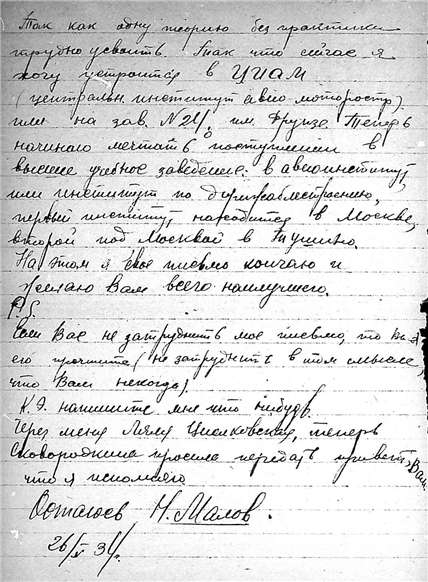 Так как одну теорию без практики
трудно усвоить. Так что сейчас я
хочу устроится в ЦИАМ
(центральн. институт авио моторостр)
или на зав. №24, им. Фрунзе. Теперь
начинаю мечтать о поступлении в
высшее учебное заведение: в авиоинститут,
или институт по дирижаблестроению,
первый институт находится в Москве,
второй под Москвой в Тушино.
На этом я свое письмо кончаю и
желаю Вам всего наилучшего.
P.S.
Если Вас не затруднить мое письмо, то Вы
его прочтите (не затруднить в том смысле,
что Вам некогда).
К.Э. напишите мне что нибудь.
Через меня Ляля Циолковская, теперь
Сковородкина просила передать привет, Вам
что я исполняю
Остаюсь Н. Малов.
26/V 31г.